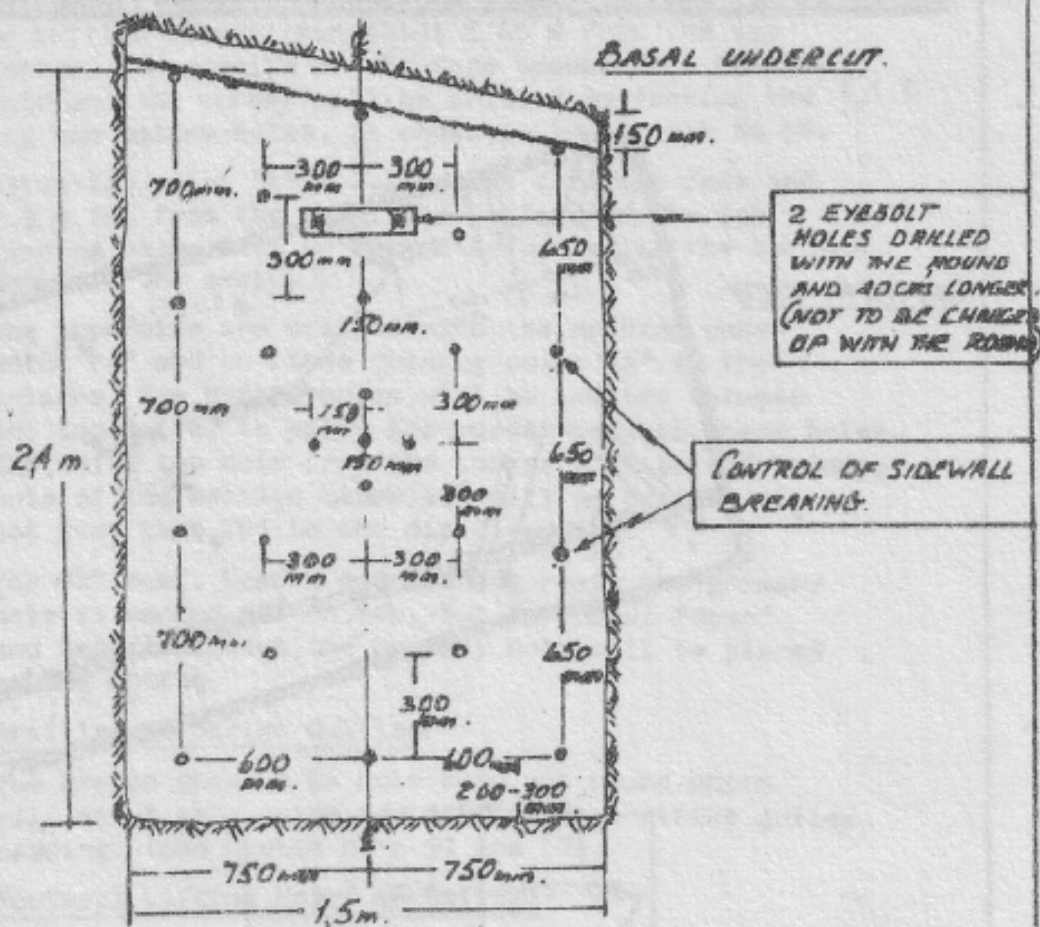 BASAL UNDERCUT.
150 mm.
300 mm
300 mm
700 mm.
300 mm
650 mm
2 EYEBOLT
HOLES DRILLED
WITH THE ROUND
AND 40CMS LONGER.
(NOT TO BE CHARGED
UP WITH THE ROUND)
150 mm.
700 mm
150 mm
300 mm
2,4 m.
150 mm
650 mm
CONTROL OF SIDEWALL
BREAKING.
300 mm
300 mm
300 mm
700 mm.
650 mm
300 mm.
600 mm.
600 mm
200-300 mm.
750 mm
750 mm.
1,5 m.